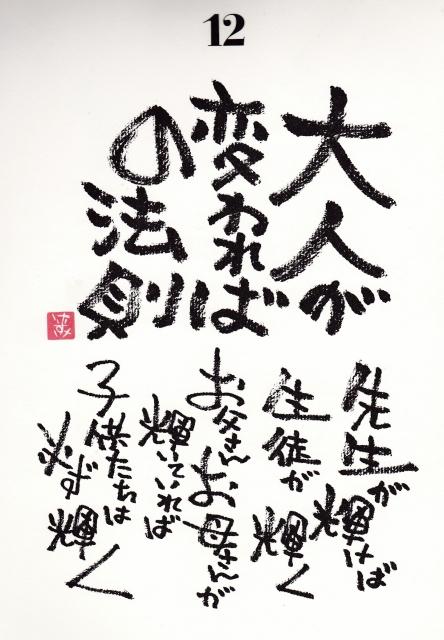 12
大人が
変われば
の法則
先生が輝けば
生徒が輝く
お父さんお母さんが
輝いていれば
子供たちは
必ず輝く